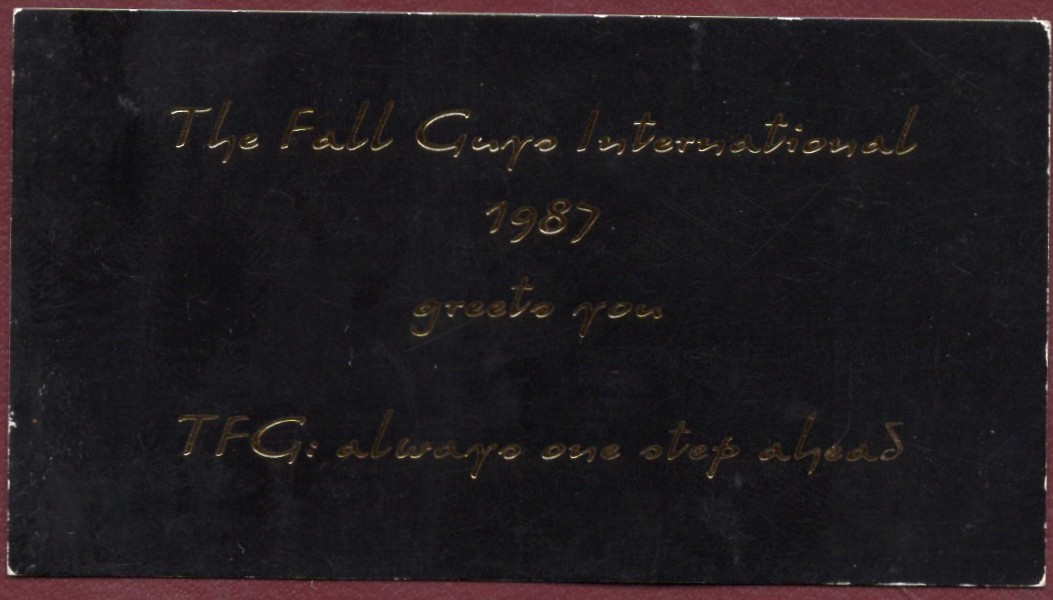 The Fall Guys International
1987
greets you
TFG: always one step ahead